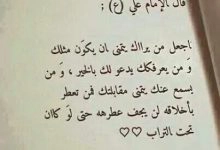 قال الإمام علي (ع) :
اجعل من يراك يتمنى ان يكون مثلك
و من يعرفك يدعو لك بالخير ، و من
يسمع عنك يتمنى مقابلتك فمن تعطر
بأخلاقه لن يجف عطرهه حتى لو كاان
تحت التراب ♡♡